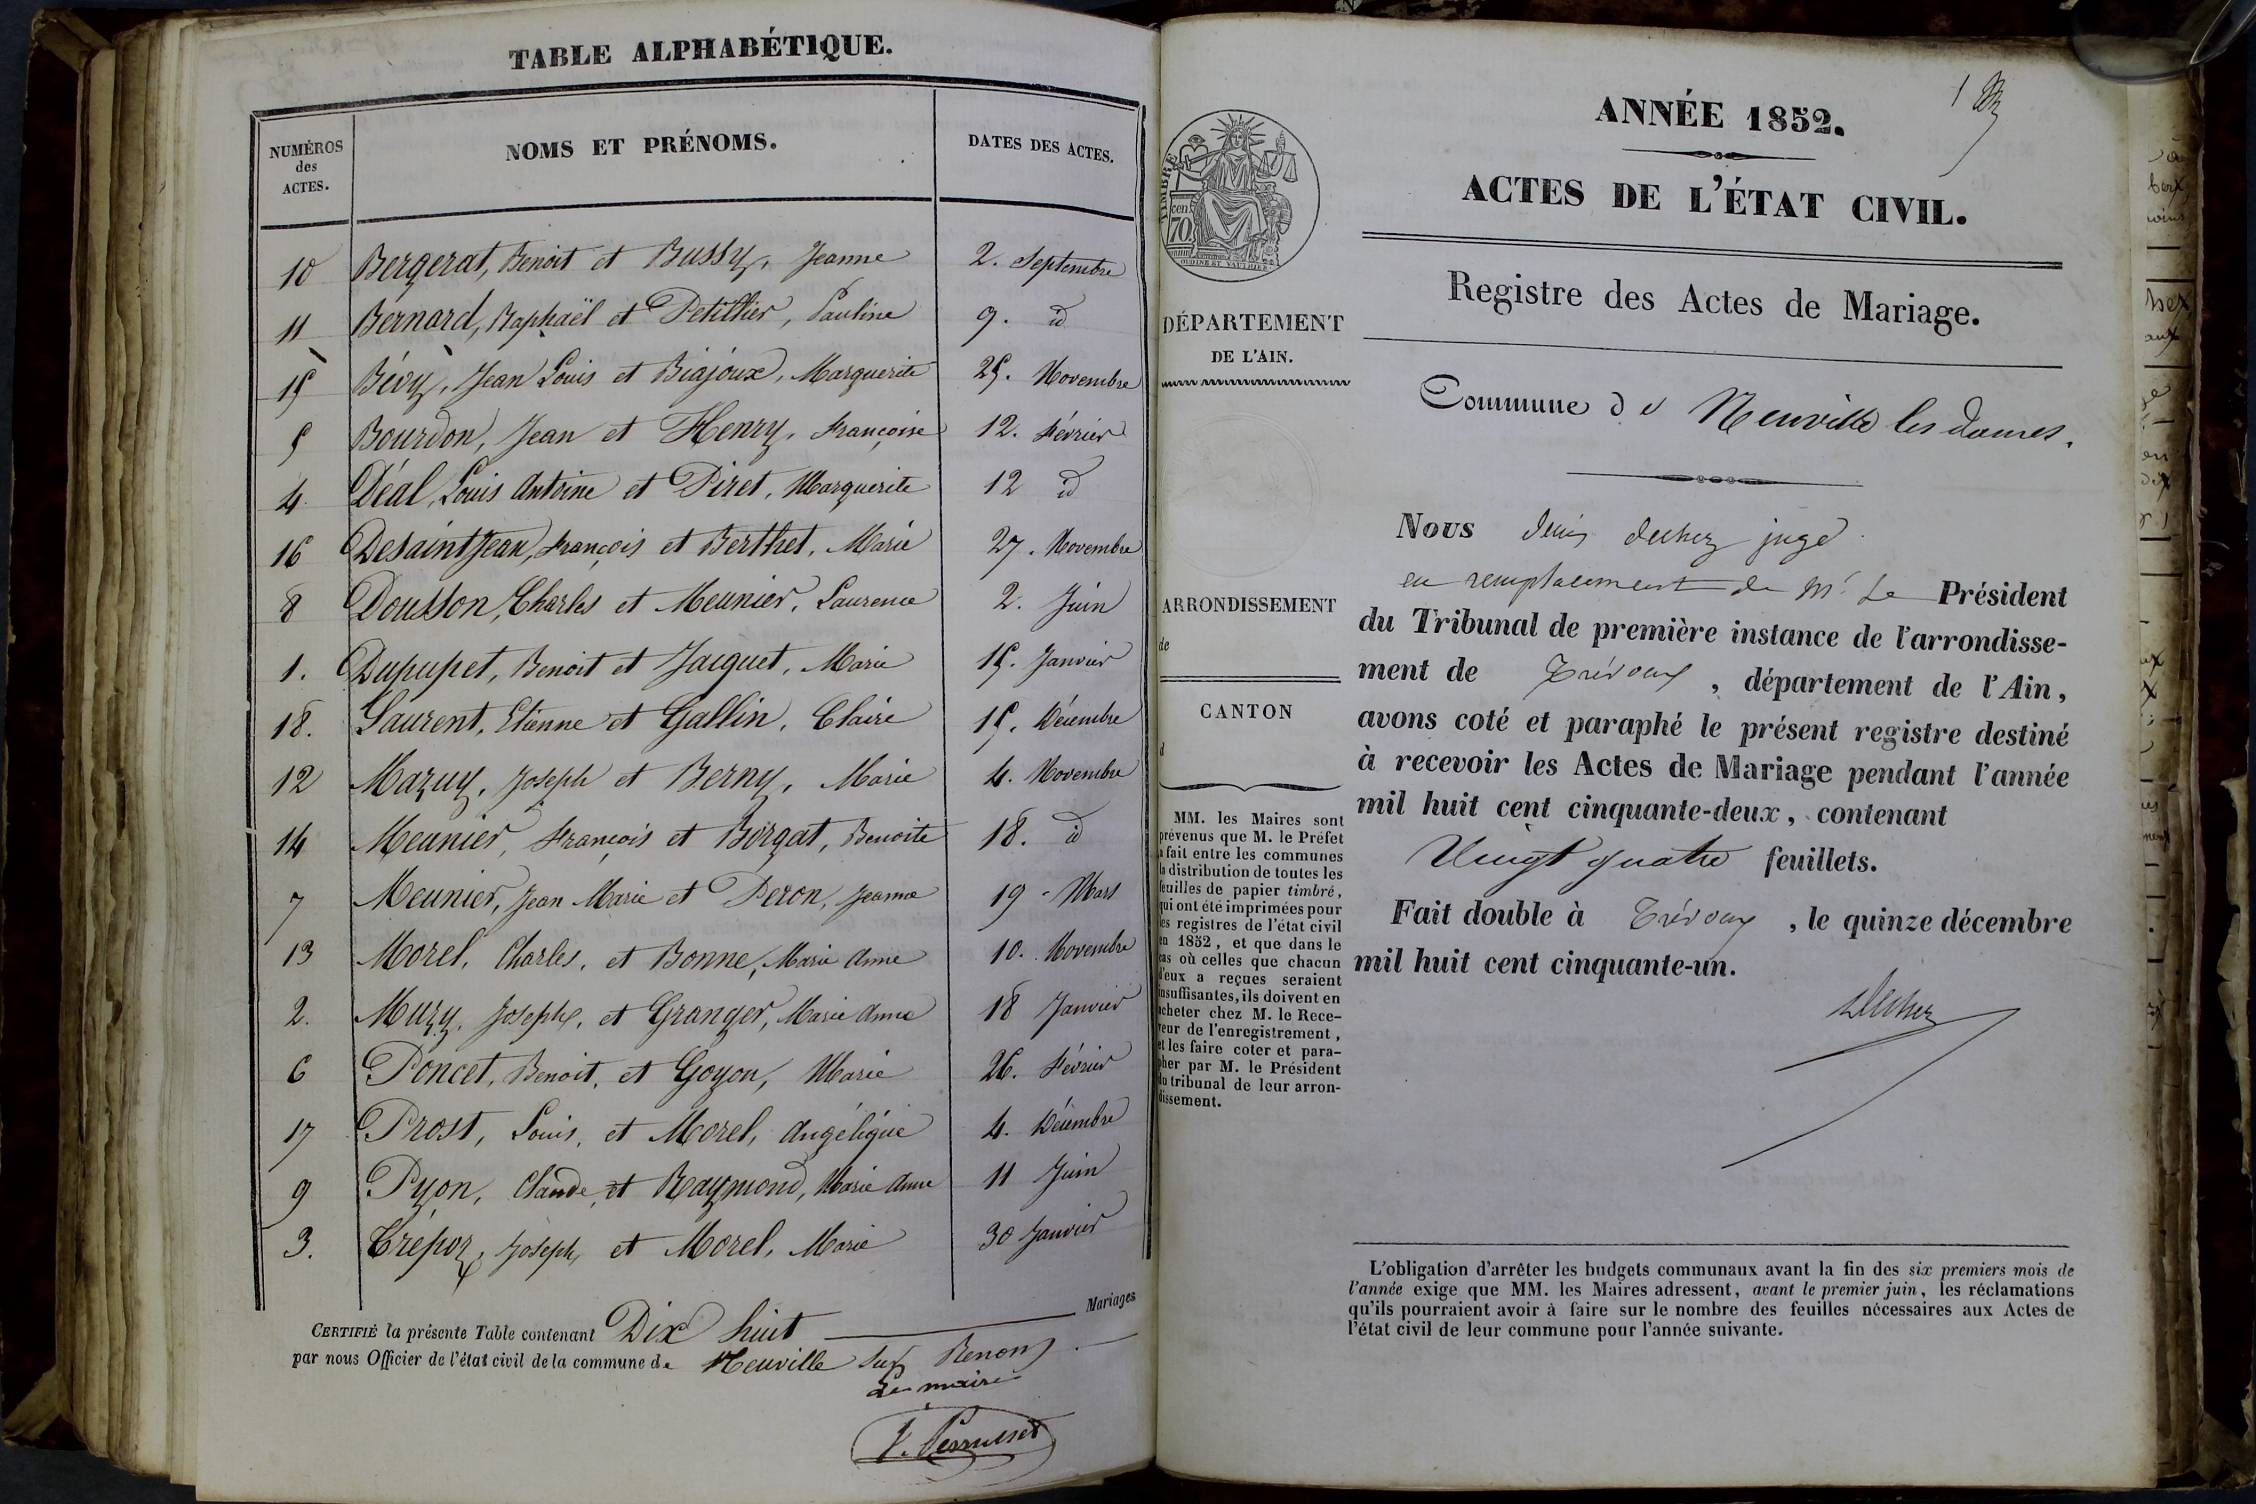 TABLE ALPHABÉTIQUE.
NUMÉROS des ACTES.
NOMS ET PRÉNOMS.
DATES DES ACTES.
10 Bergerat, Benoit et Bussy, Jeanne 2. Septembre
11 Bernard, Raphaël et Petithier, Pauline 9. id
15 Bévy, Jean Louis et Biajoux, Marguerite 25. Novembre
5 Bourdon, Jean et Henry, Françoise 12. Février
4. Déal, Louis Antoine et Piret, Marguerite 12 id
16 Desaintjean, François et Berthet, Marie 27. Novembre
8 Dousson, Charles et Meunier, Laurence 2. Juin
1. Dupupet, Benoit et Jacquet, Marie 15. Janvier
18. Laurent, Etienne et Gallin, Claire 15. Décembre
12 Mazuy, Joseph et Berny, Marie 4. Novembre
14 Meunier, François et Borgat, Benoite 18. id
7 Meunier, Jean Marie et Peron, Jeanne 19 - Mars
13 Morel, Charles, et Bonne, Marie Anne 10. Novembre
2. Muzy, Joseph, et Granger, Marie Anne 18 Janvier
6 Poncet, Benoit, et Goyon, Marie 26. Février
17 Prost, Louis, et Morel, Angélique 4. Décembre
9 Pyon, Claude, et Raymond, Marie Anne 11 Juin
3. Trépoz, Joseph, et Morel, Marie 30 Janvier
CERTIFIÉ la présente Table contenant Dix huit Mariages
par nous Officier de l'état civil de la commune de Neuville sur Renon.
Le maire
ANNÉE 1852.
1
ACTES DE L'ÉTAT CIVIL.
TIMBRE
cent
70
OUDINÉ ET VAUTHIER
Registre des Actes de Mariage.
DÉPARTEMENT
DE L'AIN.
Commune de Neuville les dames.
Nous Denis Dechez juge
en remplacement de Mr Le Président
du Tribunal de première instance de l'arrondisse-
ment de Trévoux, département de l'Ain,
avons coté et paraphé le présent registre destiné
à recevoir les Actes de Mariage pendant l'année
mil huit cent cinquante-deux, contenant
Vingt quatre feuillets.
Fait double à Trévoux, le quinze décembre
mil huit cent cinquante-un.
Dechez
ARRONDISSEMENT
de
CANTON
d
MM. les Maires sont
prévenus que M. le Préfet
a fait entre les communes
la distribution de toutes les
feuilles de papier timbré,
qui ont été imprimées pour
les registres de l'état civil
en 1852, et que dans le
cas où celles que chacun
d'eux a reçues seraient
insuffisantes, ils doivent en
acheter chez M. le Rece-
veur de l'enregistrement,
et les faire coter et para-
pher par M. le Président
du tribunal de leur arron-
dissement.
L'obligation d'arrêter les budgets communaux avant la fin des six premiers mois de
l'année exige que MM. les Maires adressent, avant le premier juin, les réclamations
qu'ils pourraient avoir à faire sur le nombre des feuilles nécessaires aux Actes de
l'état civil de leur commune pour l'année suivante.